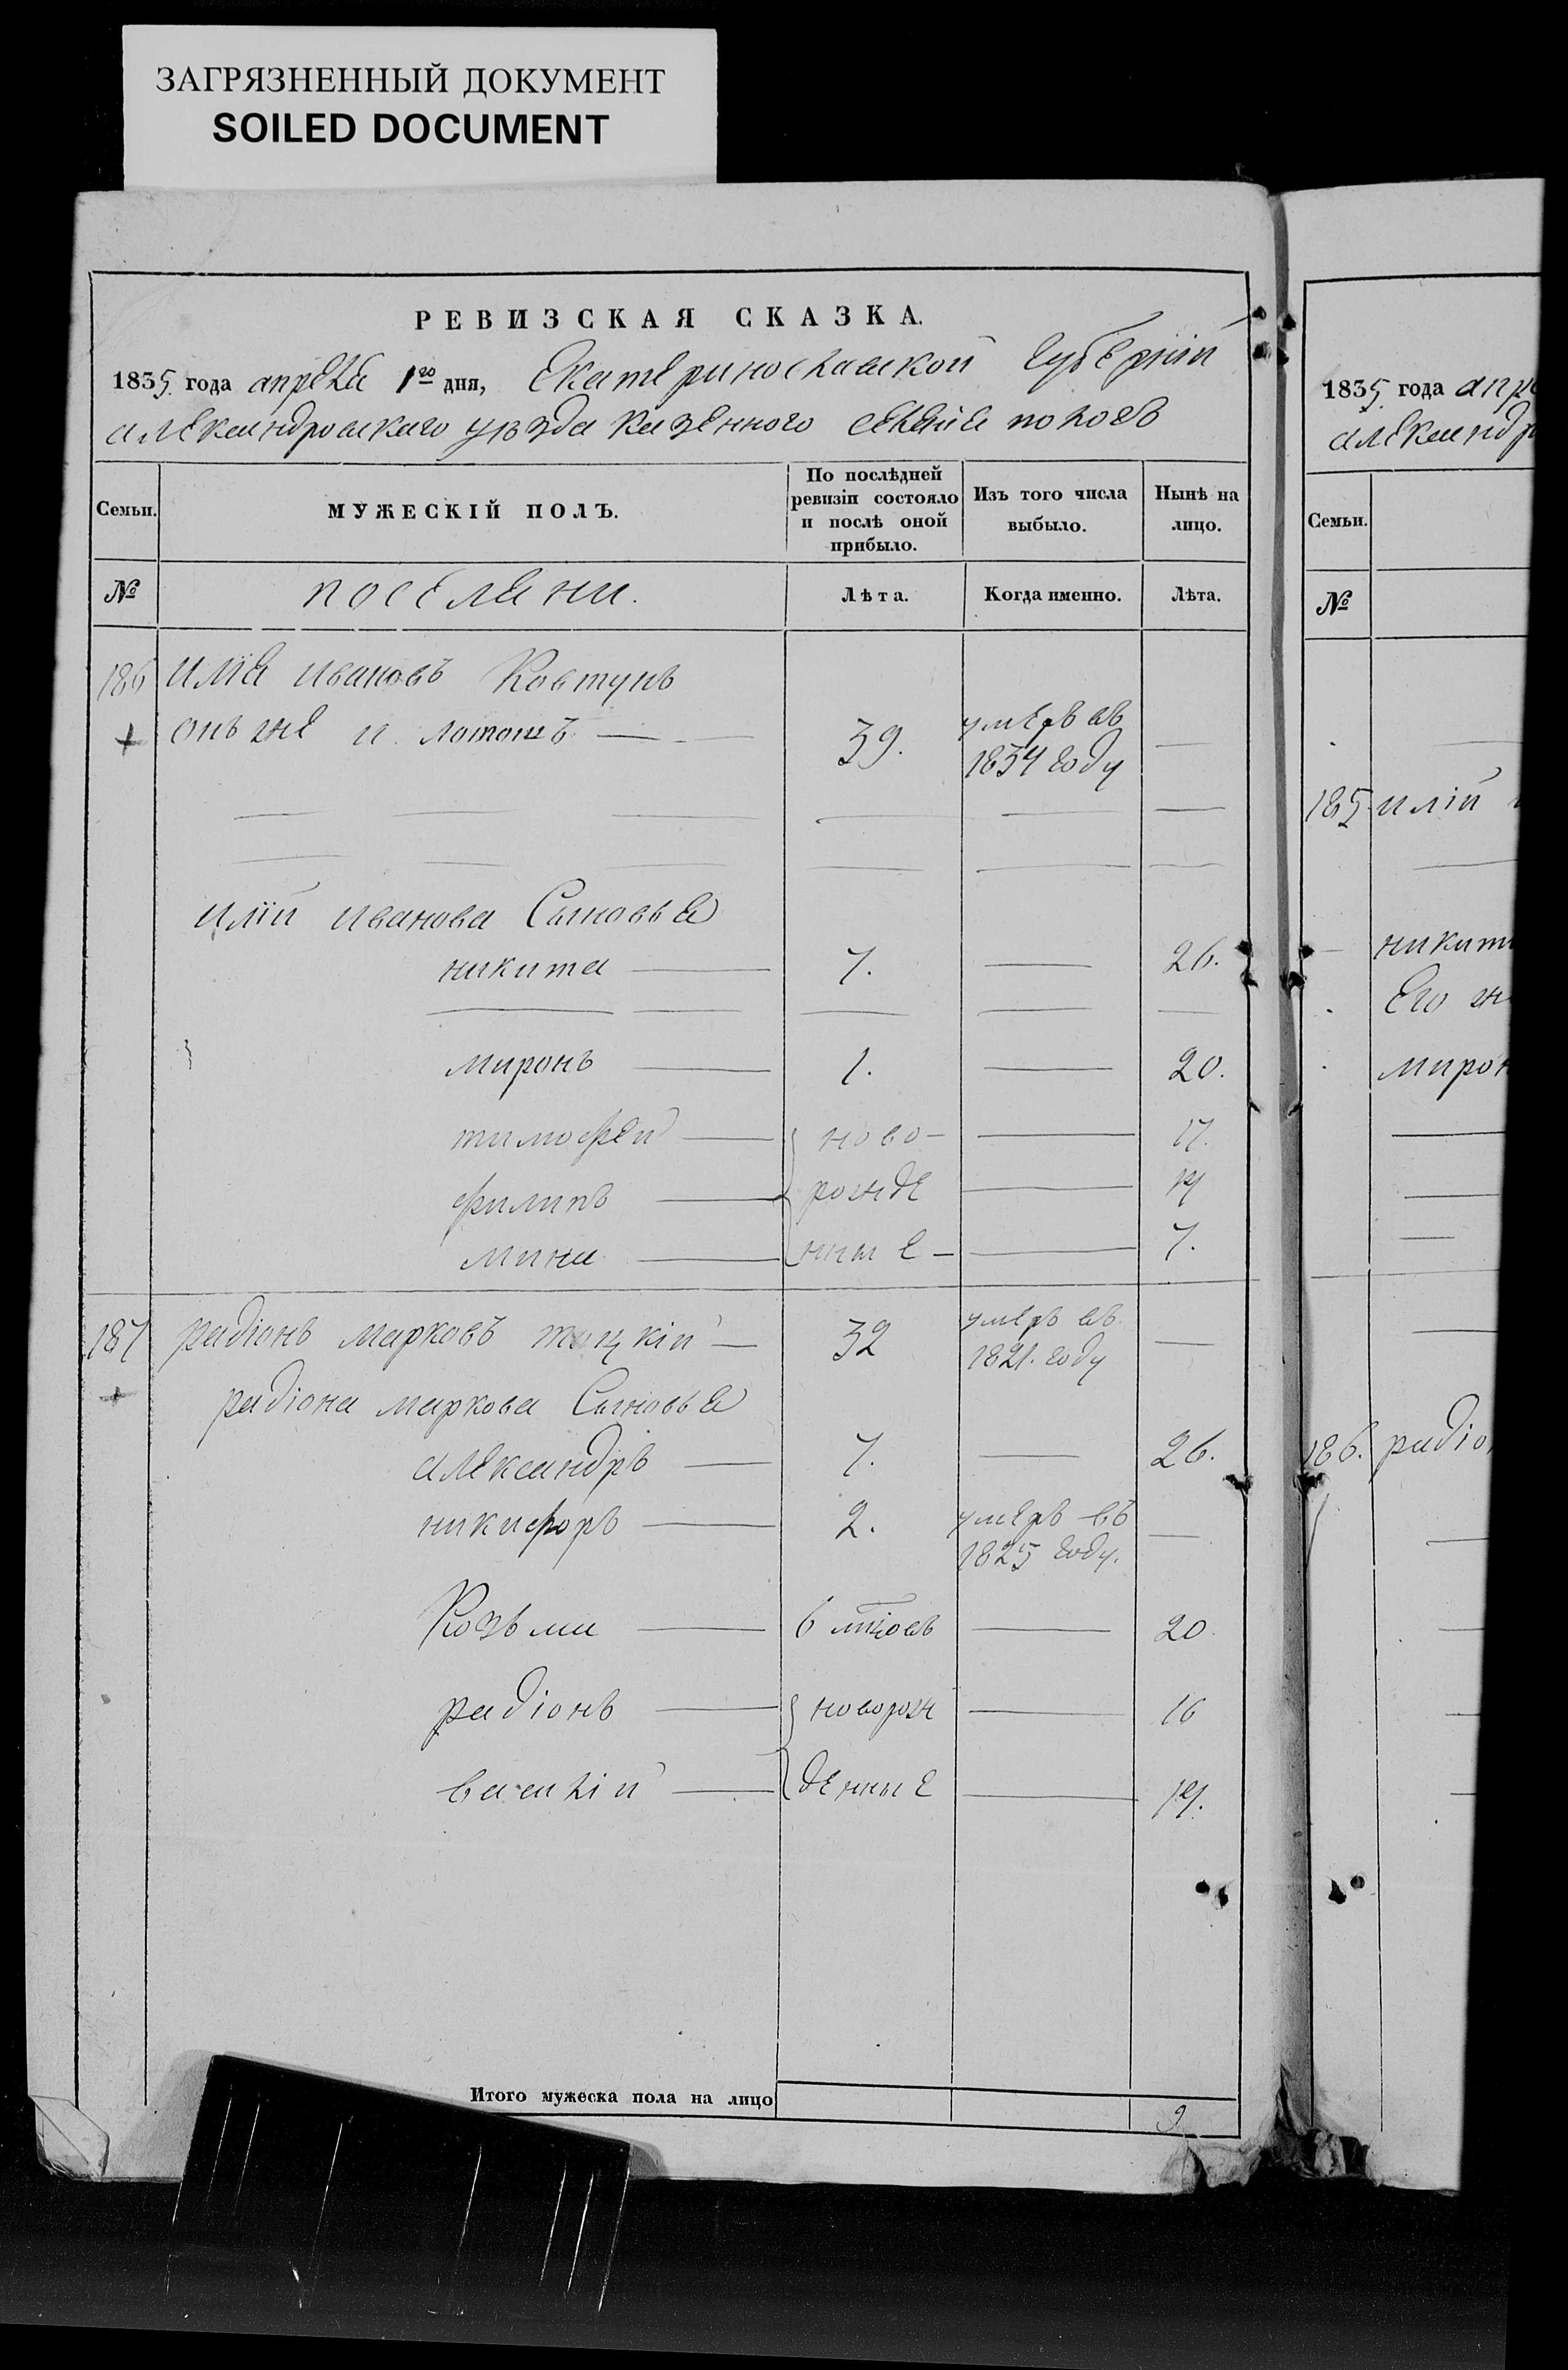 ЗАГРЯЗНЕННЫЙ ДОКУМЕНТ
SOILED DOCUMENT
РЕВИЗСКАЯ СКАЗКА.
1835 года апреля 1го дня, Екатеринославской губернiи
александровскаго уѣзда казенного селенiя пологъ
Семьи. МУЖЕСКIЙ ПОЛЪ. По послѣдней ревизiи состояло и послѣ оной прибыло. Изъ того числа выбыло. Нынѣ на лицо.
№ поселяни. Лѣта. Когда именно. Лѣта.
186 илiя ивановъ Ковтунъ
онъ же и лотошъ 39. умеръ въ 1834 году
илiи иванова Сыновья
никита 7. 26.
миронъ 1. 20.
тимофей ново- 17.
филипъ рожде 14
мина нные 7.
187 радiонъ марковъ 32 умеръ въ 1821. году
радiона маркова Сыновья
александръ 7. 26.
никифоръ 2. умеръ въ 1825 году.
Козьма 6 мцовъ 20
радiонъ наворож 16
василiй денные 14.
Итого мужеска пола на лицо 9
1835 года апре
александр
Семьи.
№
185 илiи
никит
Его ж
мирон
186. радiо